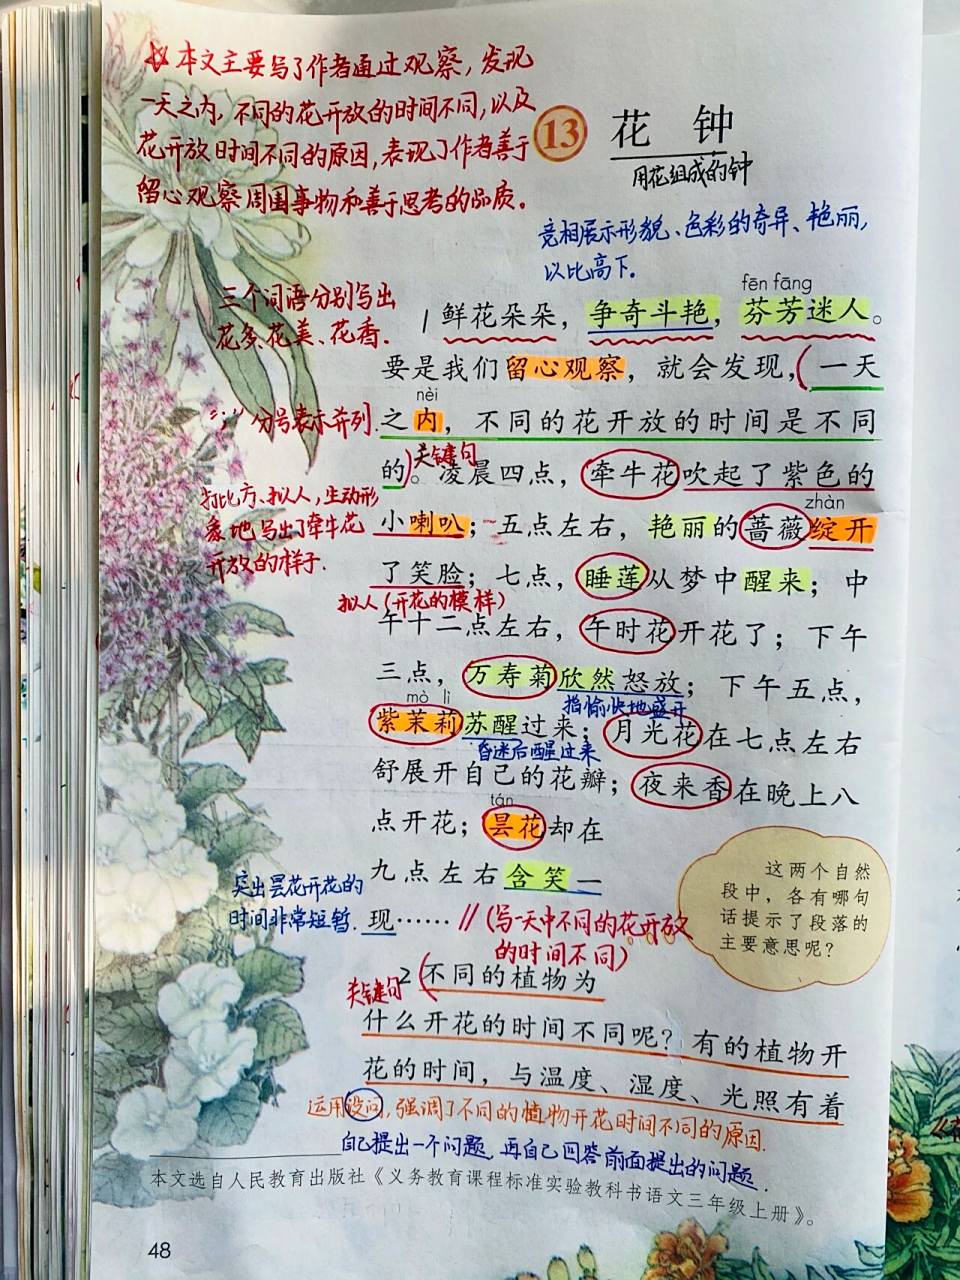 ☆本文主要写了作者通过观察，发现
一天之内，不同的花开放的时间不同，以及
花开放时间不同的原因，表现了作者善于
留心观察周围事物和善于思考的品质。
13 花 钟
用花组成的钟
竞相展示形貌、色彩的奇异、艳丽，
以比高下。
三个词语分别写出
花多、花美、花香.
fēn fāng
1 鲜花朵朵，争奇斗艳，芬芳迷人。
要是我们留心观察，就会发现，(一天
nèi
“；”分号表示并列.
之内，不同的花开放的时间是不同
关键句
的)。凌晨四点，牵牛花吹起了紫色的
打比方、拟人，生动形
象地写出了牵牛花
开放的样子.
zhàn
小喇叭；五点左右，艳丽的蔷薇绽开
了笑脸；七点，睡莲从梦中醒来；中
拟人(开花的模样)
午十二点左右，午时花开花了；下午
三点，万寿菊欣然怒放；下午五点，
指愉快地盛开
mò lì
紫茉莉苏醒过来；月光花在七点左右
昏迷后醒过来
舒展开自己的花瓣；夜来香在晚上八
tán
点开花；昙花却在
九点左右含笑一
突出昙花开花的
时间非常短暂.
现……//(写一天中不同的花开放
的时间不同)
这两个自然
段中，各有哪句
话提示了段落的
主要意思呢？
关键句
2(不同的植物为
什么开花的时间不同呢？有的植物开
花的时间，与温度、湿度、光照有着
运用设问，强调了不同的植物开花时间不同的原因.
自己提出一个问题，再自己回答前面提出的问题.
本文选自人民教育出版社《义务教育课程标准实验教科书语文三年级上册》。
48